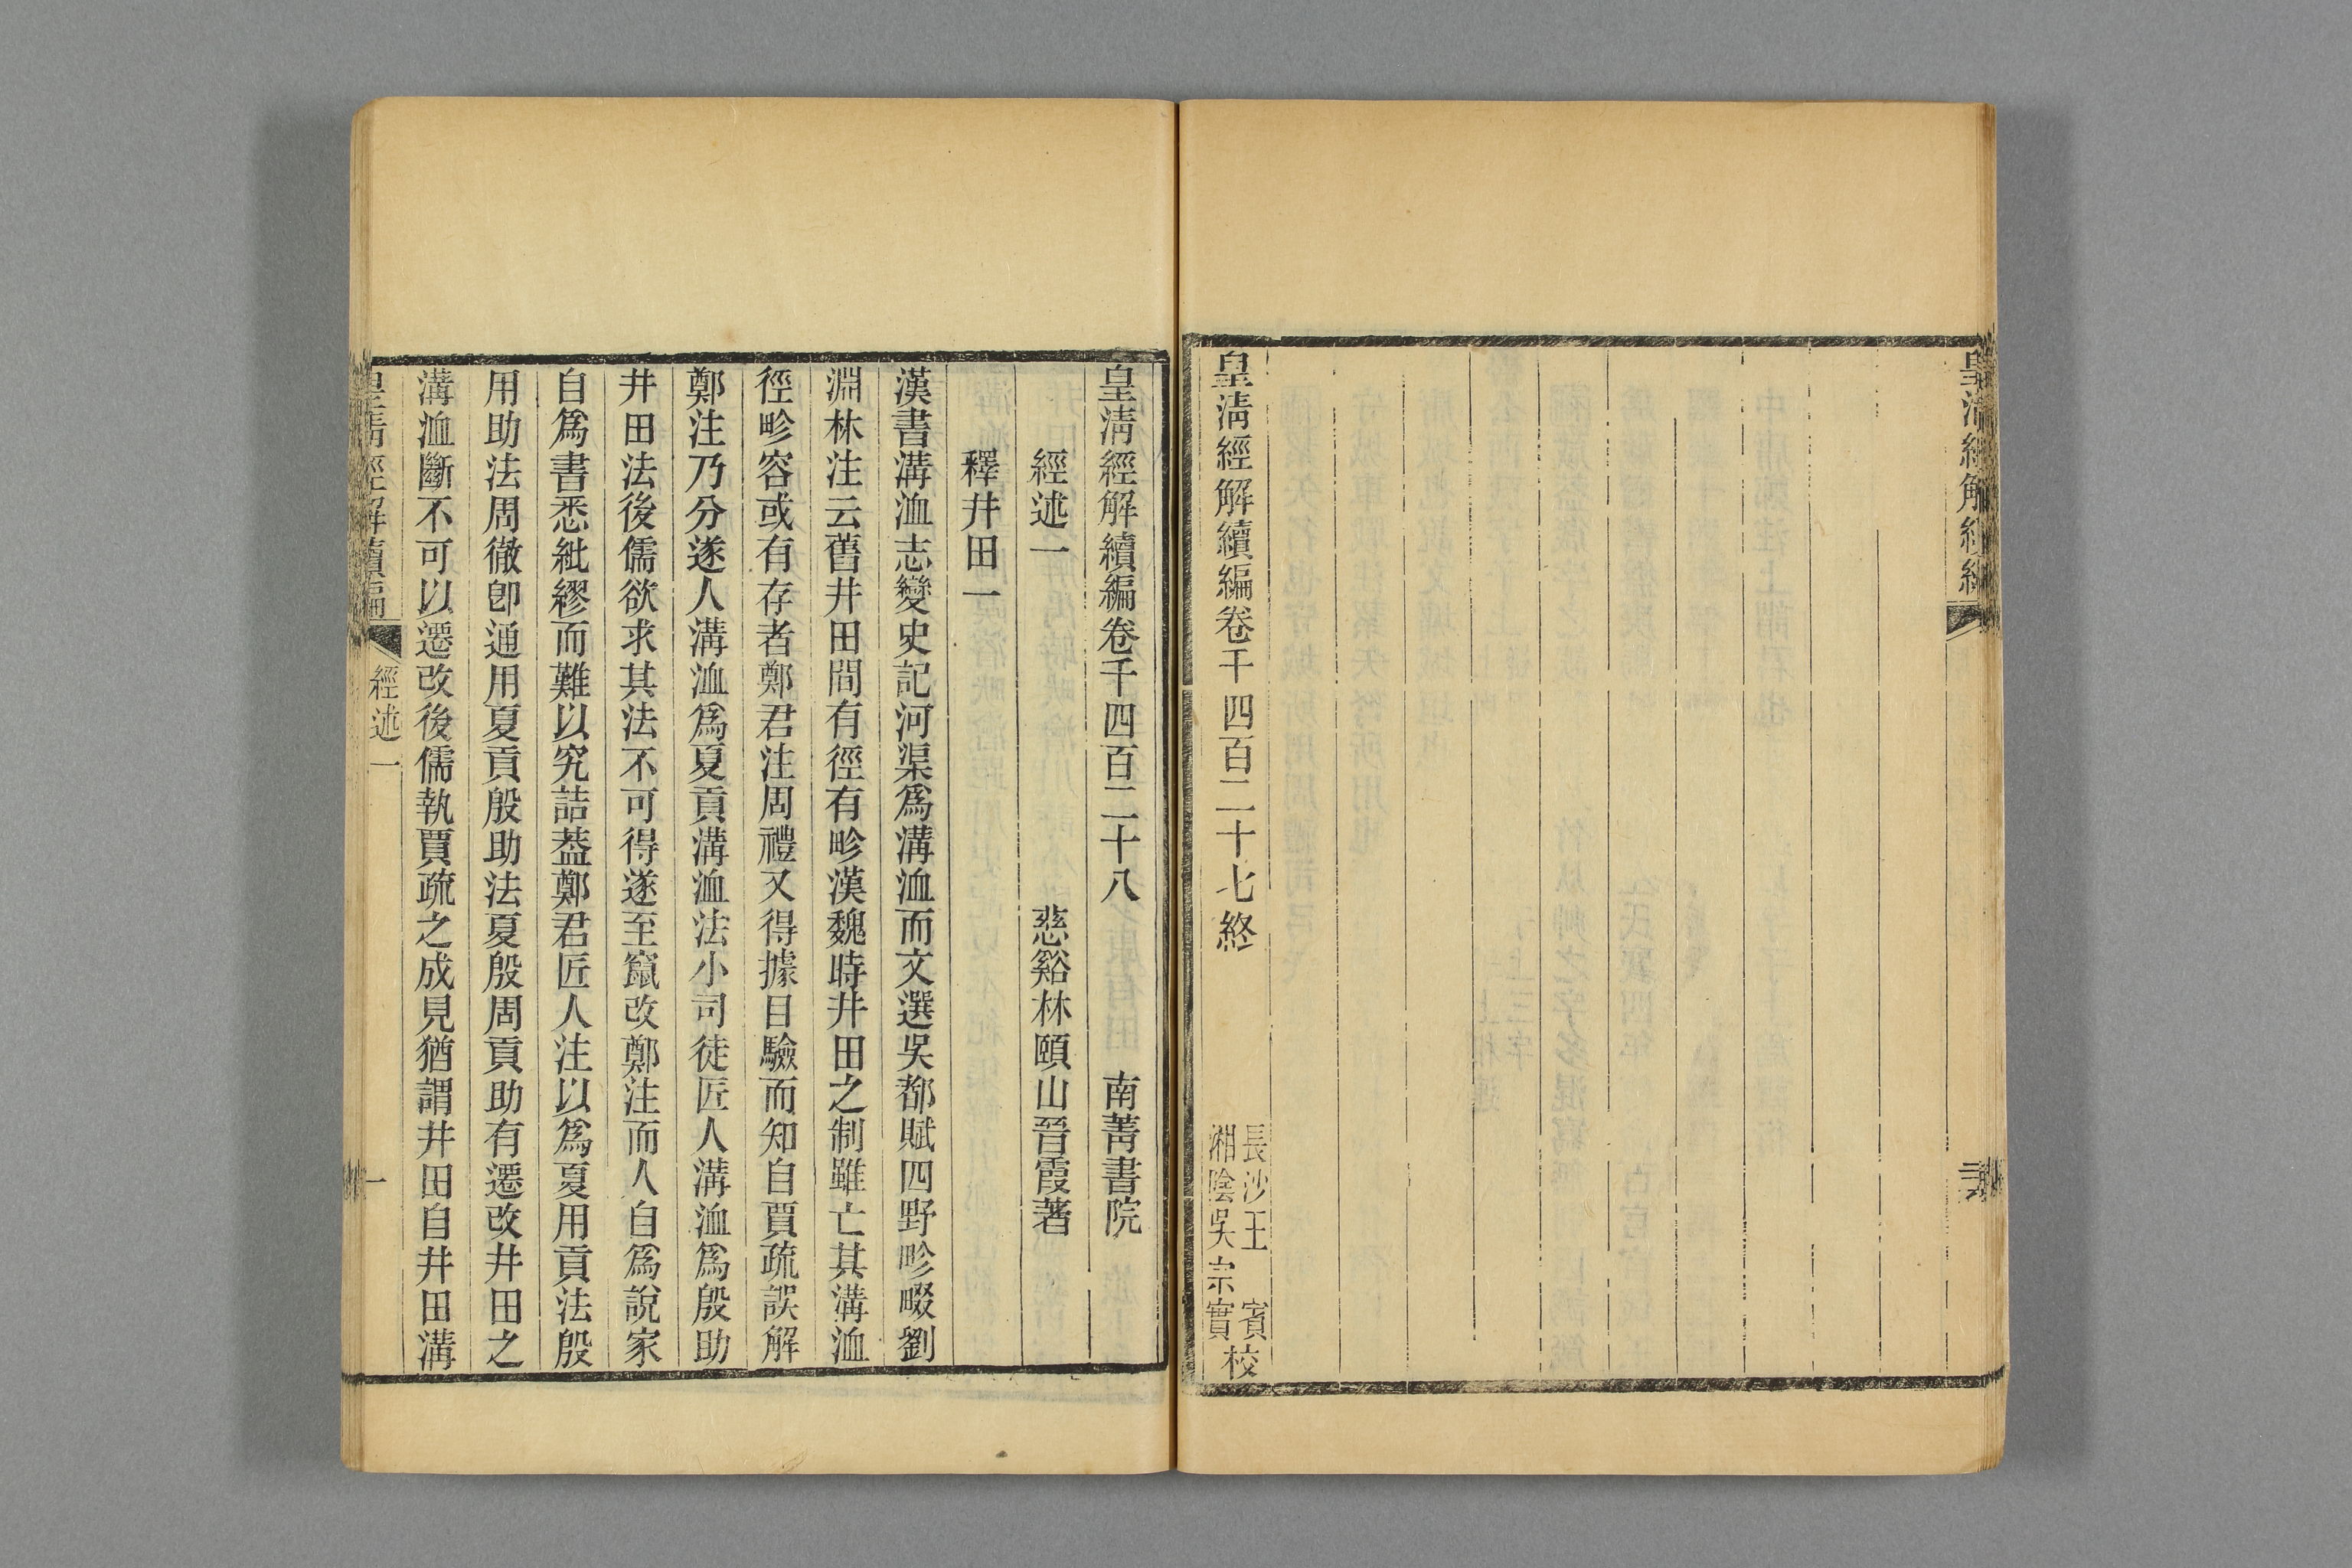 皇清經解續編
皇清經解續編卷千四百二十七終
長沙王 賓
湘陰吳宗實
校
皇清經解續編卷千四百二十八 南菁書院
經述一 慈谿林頤山晉霞著
釋井田一
漢書溝洫志變史記河渠爲溝洫而文選吳都賦四野畛畷劉
淵林注云舊井田間有徑有畛漢魏時井田之制雖亡其溝洫
徑畛容或有存者鄭君注周禮又得據目驗而知自賈疏誤解
鄭注乃分遂人溝洫爲夏貢溝洫法小司徒匠人溝洫爲殷助
井田法後儒欲求其法不可得遂至竄改鄭注而人自爲說家
自爲書悉紕繆而難以究詰葢鄭君匠人注以爲夏用貢法殷
用助法周徹卽通用夏貢殷助法夏殷周貢助有遷改井田之
溝洫斷不可以遷改後儒執賈疏之成見猶謂井田自井田溝
皇清經解續編 經述一 一